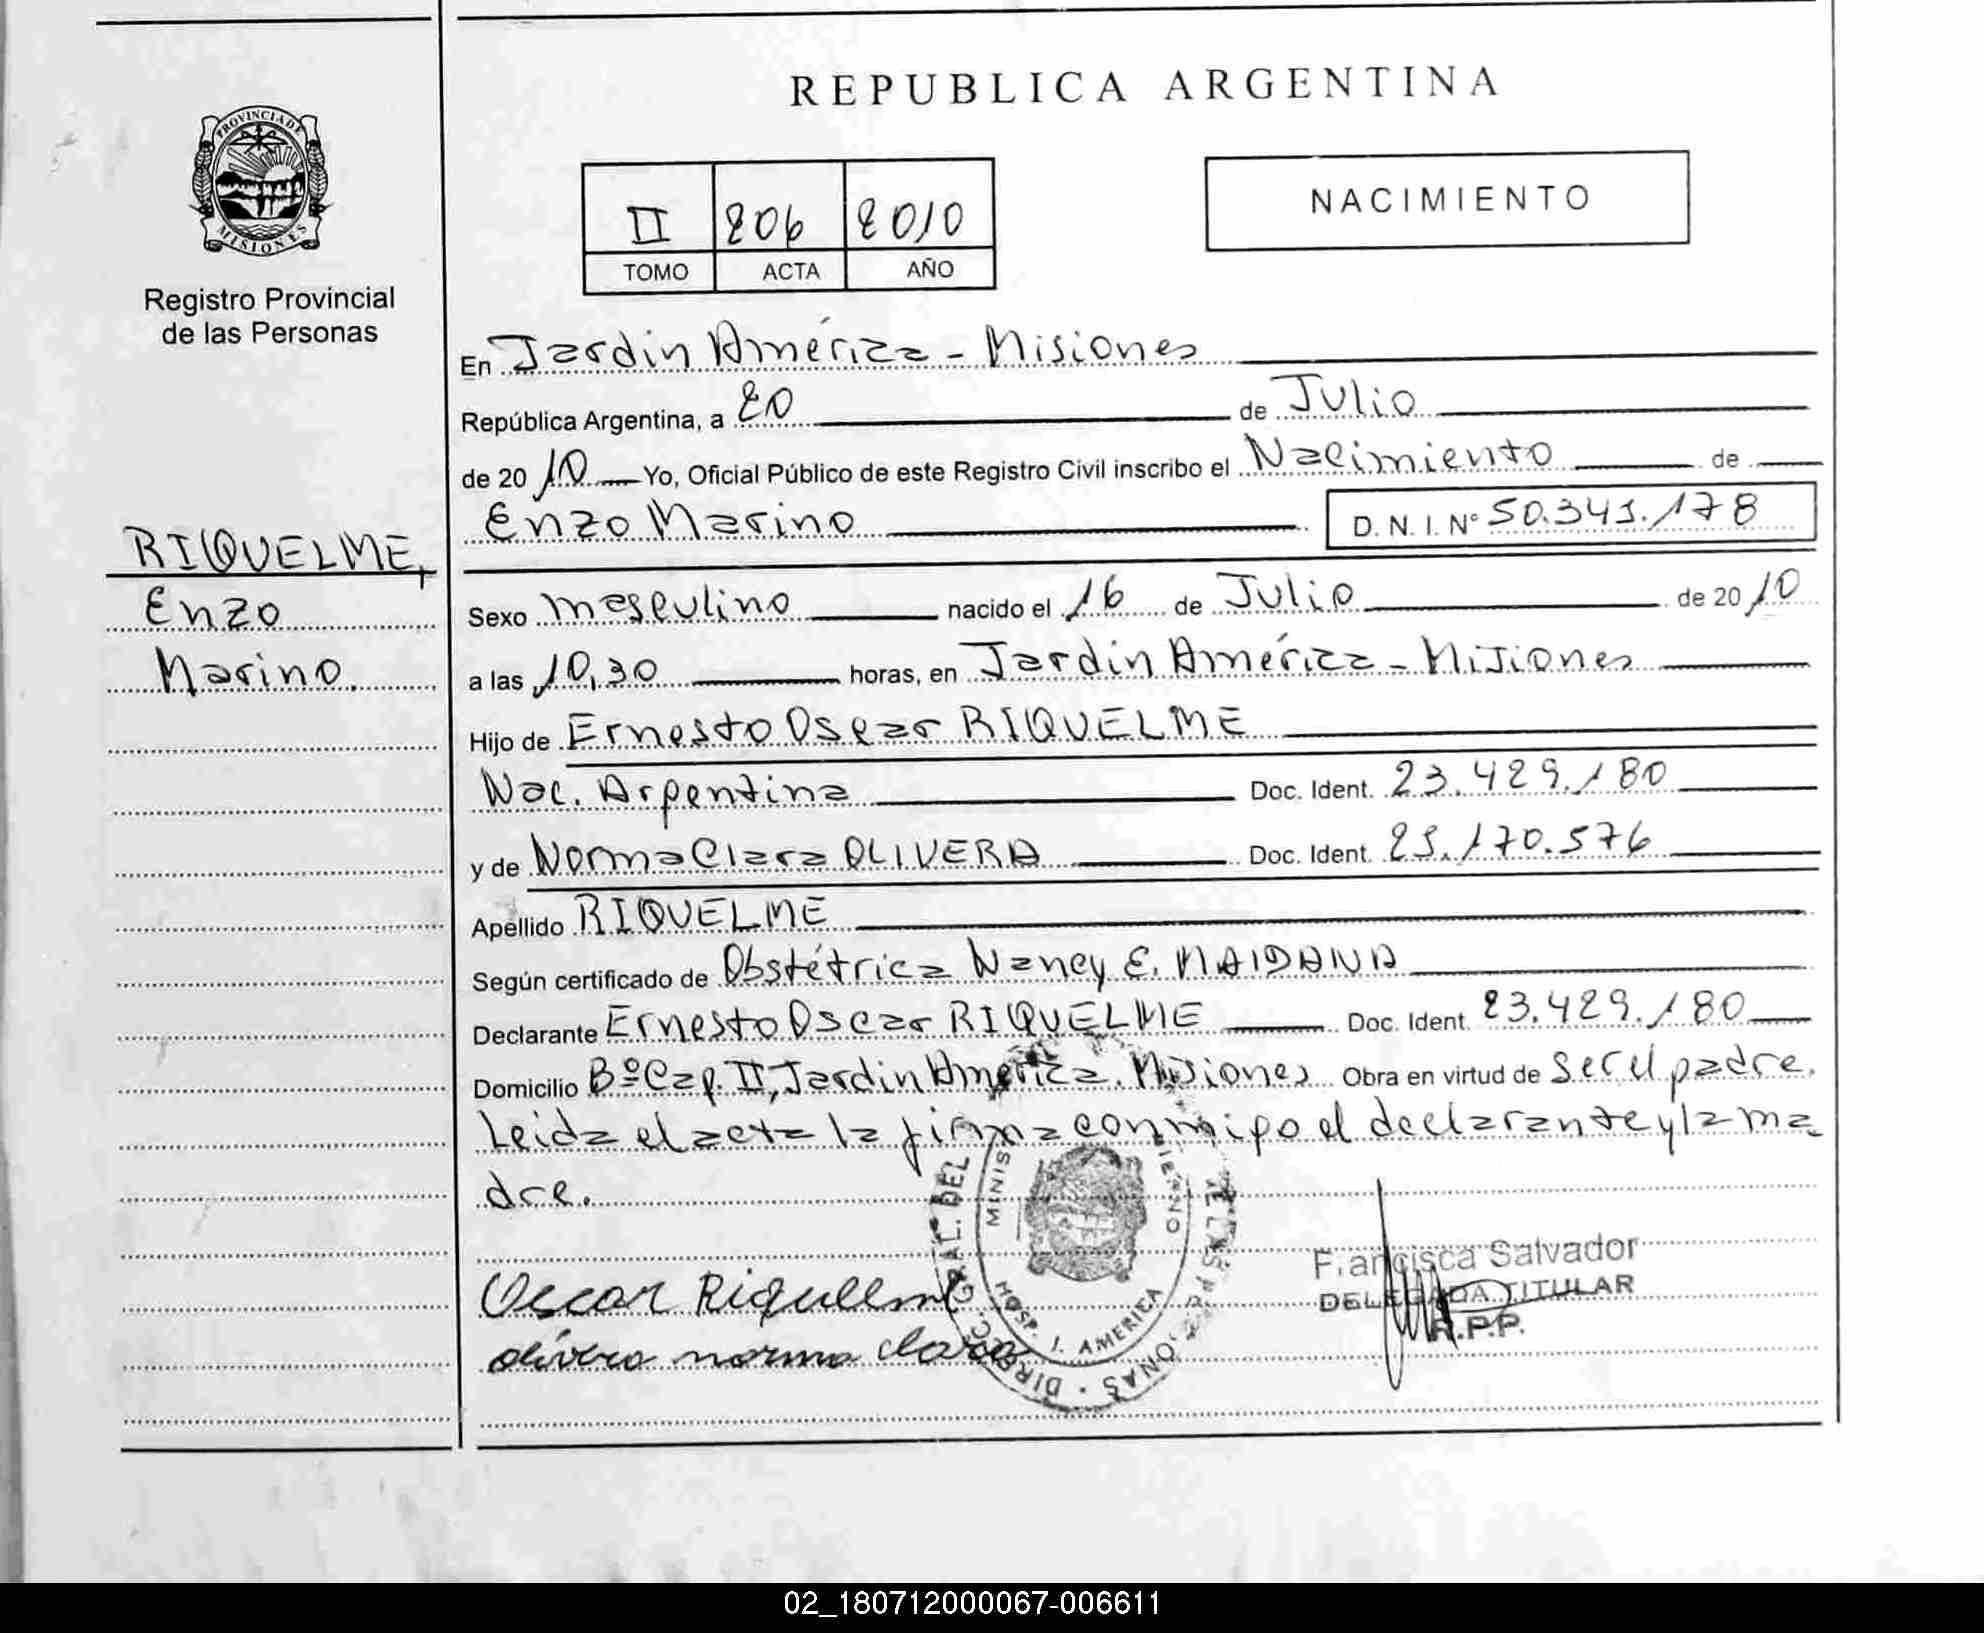 REPUBLICA ARGENTINA
PROVINCIA DE
MISIONES
Registro Provincial
de las Personas
II 206 2010
TOMO ACTA AÑO
NACIMIENTO
En Jardin América - Misiones
República Argentina, a 20 de Julio
de 2010 Yo, Oficial Público de este Registro Civil inscribo el Nacimiento de
Enzo Marino D. N. I. Nº 50.341.178
RIQUELME,
Enzo
Marino.
Sexo masculino nacido el 16 de Julio de 2010
a las 10,30 horas, en Jardin América - Misiones
Hijo de Ernesto Oscar RIQUELME
Nac. Argentina Doc. Ident. 23.429.180
y de Norma Clara OLIVERA Doc. Ident. 25.170.576
Apellido RIQUELME
Según certificado de Obstétrica Nancy E. MAIDANA
Declarante Ernesto Oscar RIQUELME Doc. Ident. 23.429.180
Domicilio Bº Cap. II, Jardin América. Misiones Obra en virtud de Ser el padre.
Leida el acta la firma conmigo el declarante y la ma
dre.
Francisca Salvador
DELEGADA TITULAR
R.P.P.
Oscar Riquelme
olivera norma clara
HOSP. J. AMERICA
02_180712000067-006611